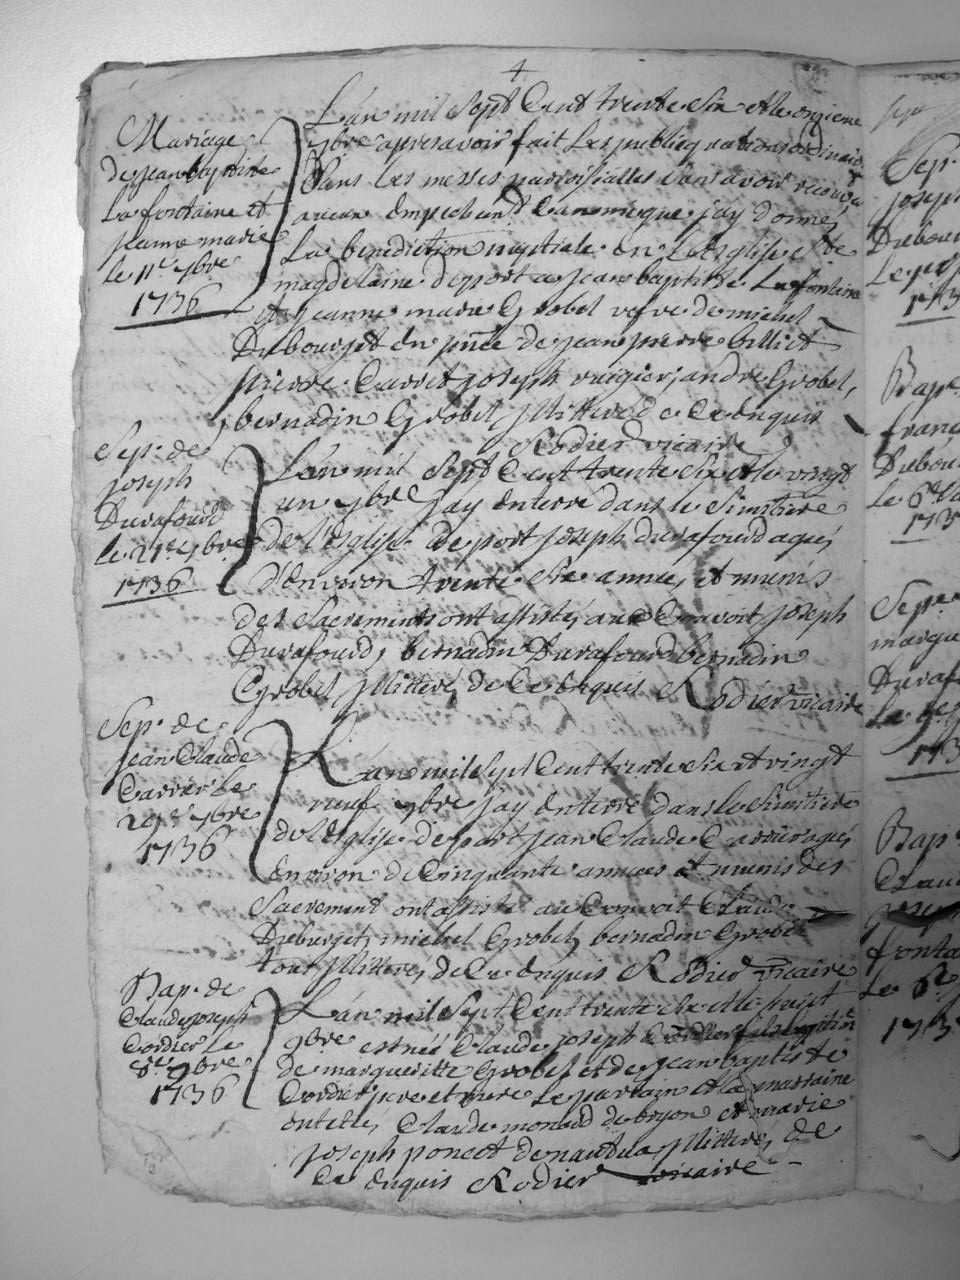 4
Mariage
de jean baptiste
La fontaine et
jeanne marie
le 11e 7bre
1736
L'an mil sept Cent trente six et le onzieme
7bre apres avoir fait les publications ordinaires
Dans les messes paroissialles sans avoir recouvu
aucun empechent Canonique jay donné
La benediction nuptiale en l'esglise Ste
magdelaine de port a jean baptiste La fontaine
et jeanne marie Grobel vefve de michel
Dubourget en pnce de jean pierre billiet
pierre Carrit joseph rougier, andre Grobel,
bernadin Grobel jllitteré de ce enquis
Rodier vicaire
Sepe de
joseph
Durafourd
le 21e 7bre
1736
L'an mil sept Cent trente six et le vingt
un 7bre jay enterré dans le Simitiere
de l'esglise de port joseph durafourd agué
d'environ trente six années et munis
des Sacrements ont assisté au Convoit joseph
Durafourd, bernadin Durafourd bernadin
Grobel jllitteré de ce enquis Rodier vicaire
Sepe de
jean Claude
Carrier le
29e 7bre
1736
L'an mil sept Cent trente six et vingt
neuf 7bre jay enterré dans le Simitiere
de l'esglise de port jean Claude Carrier agué
environ de Cinquante années et munis des
Sacrement ont assisté au Convoit Claude
Duburget, michel Grobel, bernadin Grobel
tout jllitteré de Ce enquis Rodier vicaire
Bape de
Claude joseph
Cordier le
8e 9bre
1736
L'an mil sept Cent trente six et le huict
9bre est né Claude joseph Cordier fils legitime
de margueritte Grobel et de jean baptiste
Cordier pere et mere Le parrain et la marraine
ont eté Claude monod de bryon et marie
joseph poncet de nantua jllitteré de
Ce enquis Rodier vicaire
Sepe
joseph
Dubour
1736
Bape
franc
Dubour
le 6e
173
Sepe
margue
Durafo
173
Bape
Claud
joseph
fonta
Le 6e
173